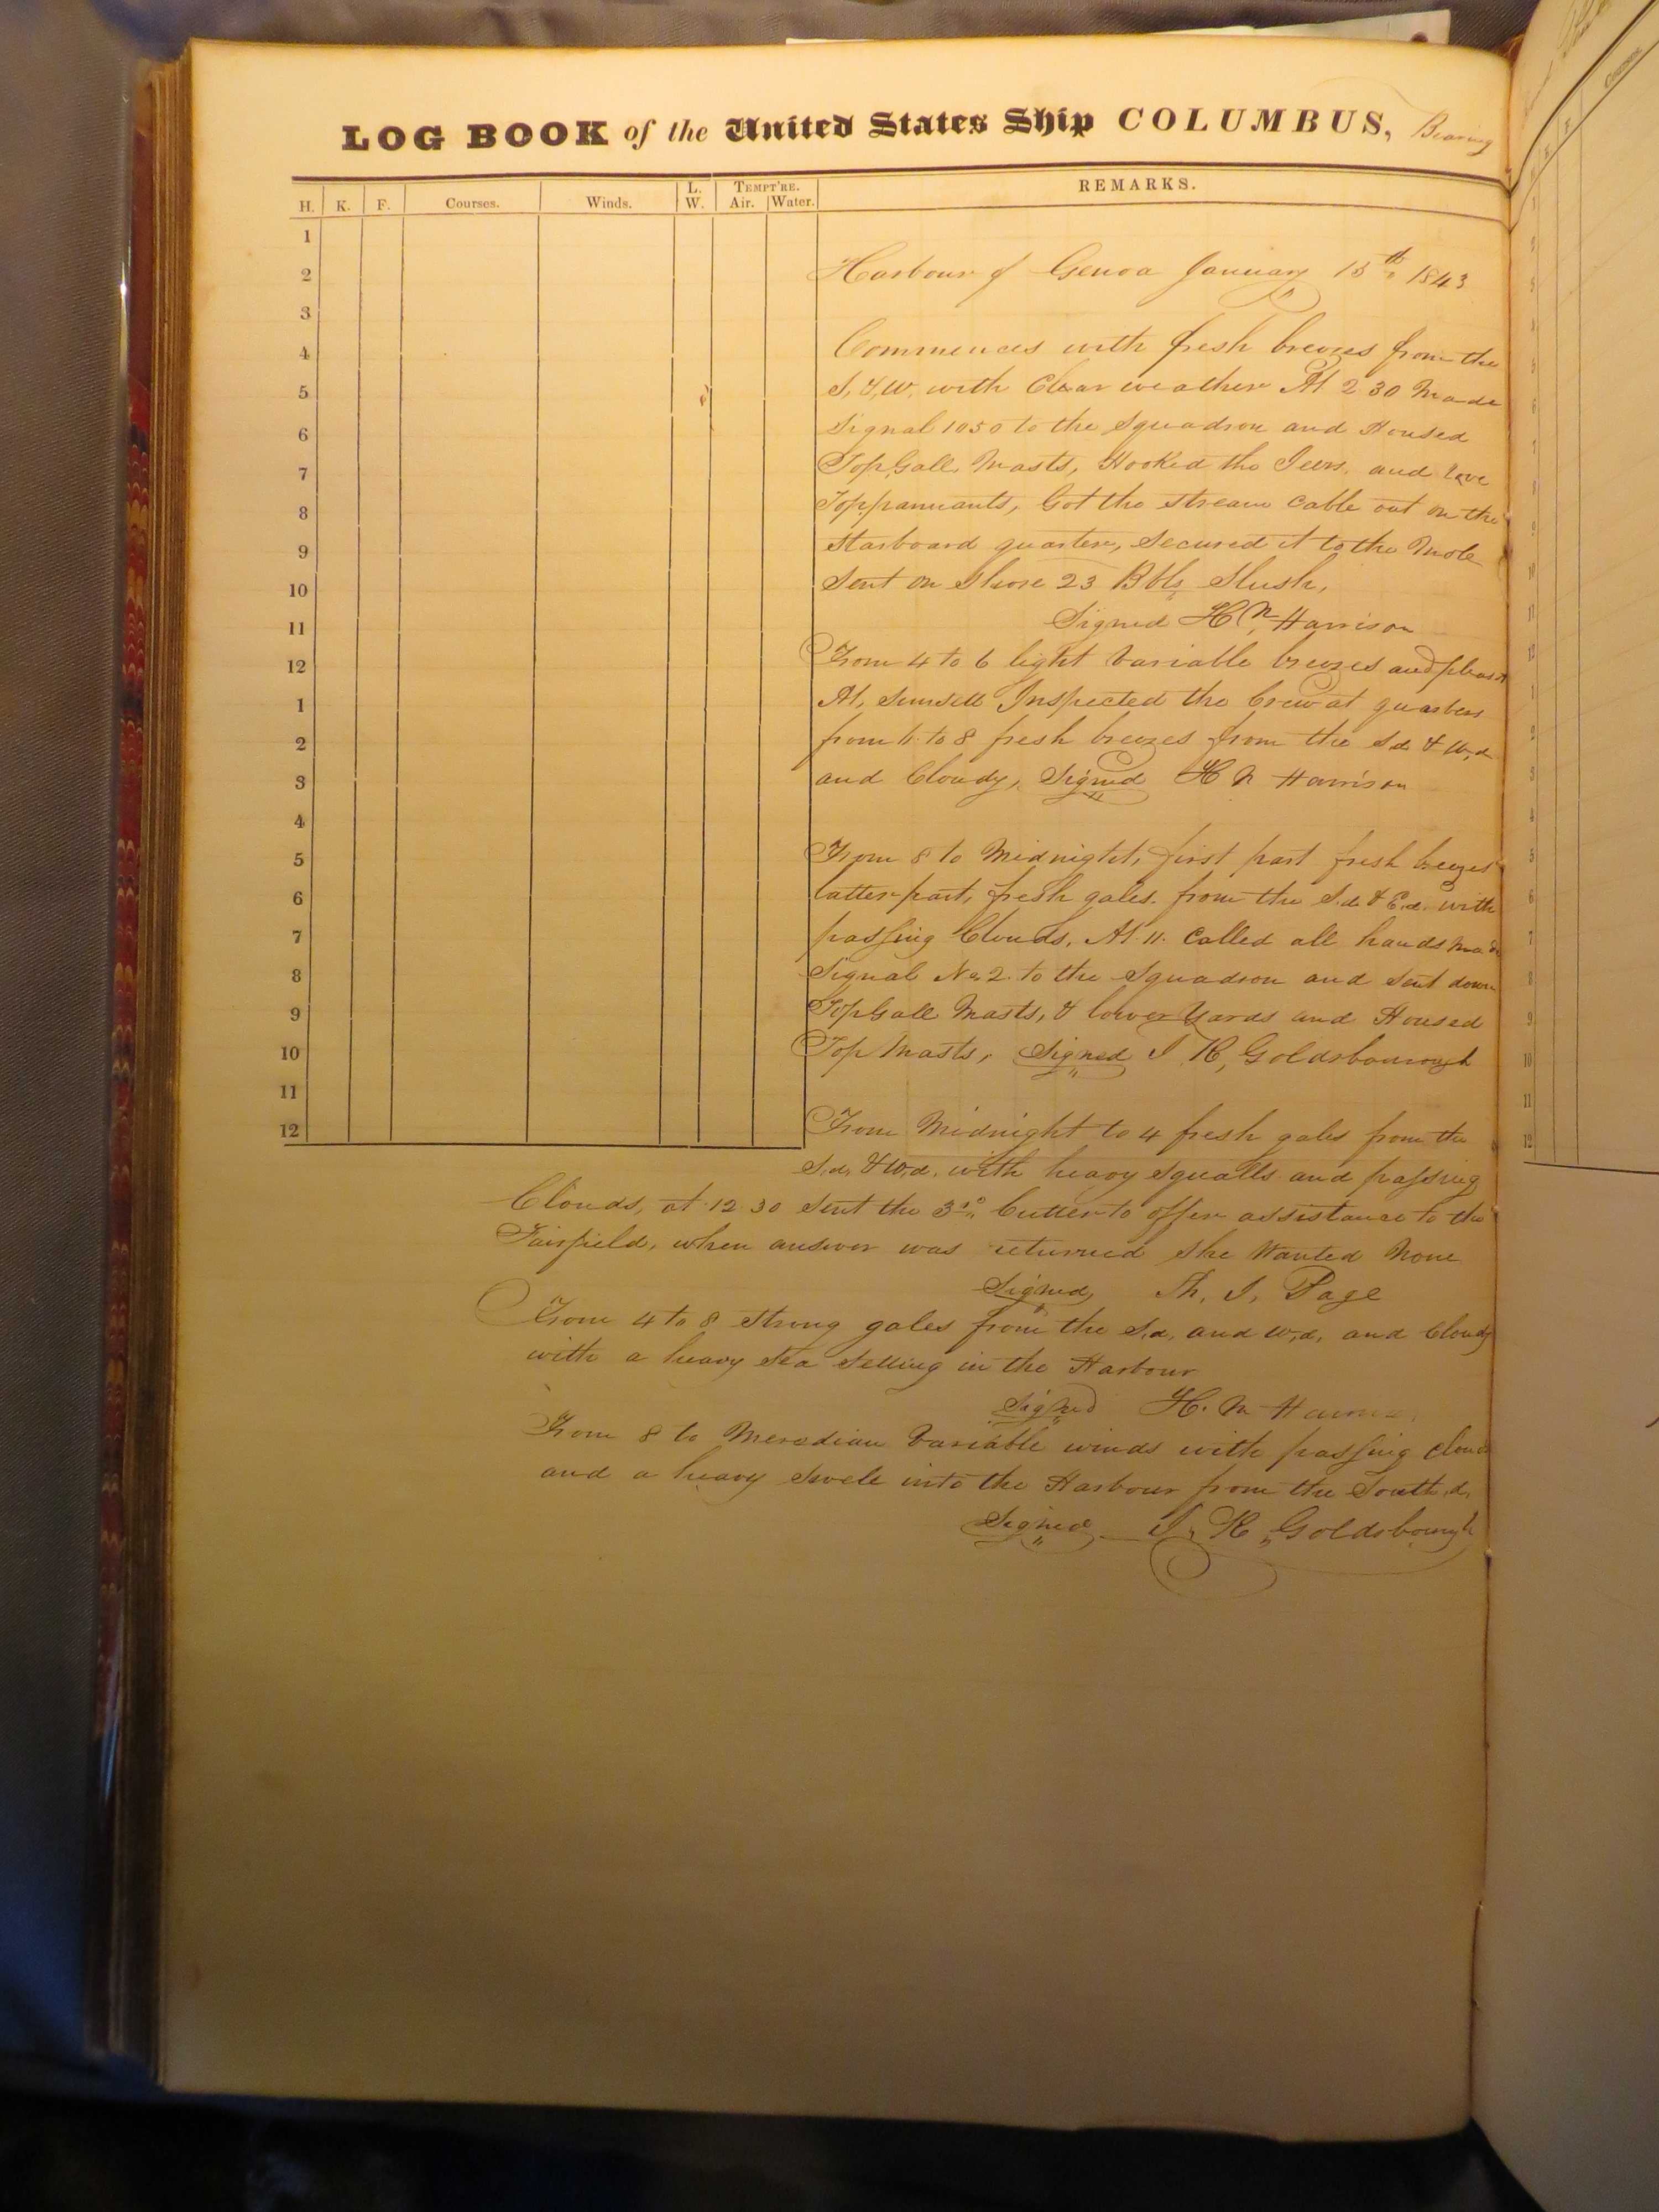 LOG BOOK of the United States Ship COLUMBUS, Bearing
H. K. F. Courses. Winds. L. W. TEMPT'RE. Air. Water. REMARKS.
1
2 Harbour of Genoa January 15th, 1843
3
4 Commences with fresh breezes from the
5 S, & W, with Clear weather At 2 30 Made
6 Signal 1050 to the Squadron and Housed
7 TopGall, Masts, Hooked the Jeers, and rove
8 Toppennants, Got the stream Cable out on the
9 starboard quarter, secured it to the Mole
10 Sent on Shore 23 Bbls Slush,
11 Signed H. N. Harrison
12 From 4 to 6 light Variable breezes and pleast
1 At, Sunsett Inspected the Crew at quarters
2 from 6 to 8 fresh breezes from the Sd & W,d
3 and Cloudy, Signed H N Harrison
4
5 From 8 to Midnight, first part fresh breezes
6 latter part, fresh gales. from the S.d. & E.d. with
7 passing Clouds, At 11. Called all hands Made
8 Signal No. 2. to the Squadron and Sent down
9 TopGall Masts, & lower Yards and Housed
10 Top Masts, Signed J. R, Goldsborough
11
12 From Midnight to 4 fresh gales from the
S.d. & W.d. with heavy squalls and passing
Clouds, at 12 30 Sent the 3d Cutter to offer assistance to the
Fairfield, when answer was returned she Wanted None
Signed, Th. J. Page
From 4 to 8 Strong gales from the S.d. and W.d. and Cloudy
with a heavy Sea Setting in the Harbour
Signed H. N. Harrison
From 8 to Meredian Variable winds with passing Clouds
and a heavy Swell into the Harbour from the South.d,
Signed J. R. Goldsborough
1
2
3
4
5
6
7
8
9
10
11
12
1
2
3
4
5
6
7
8
9
10
11
12